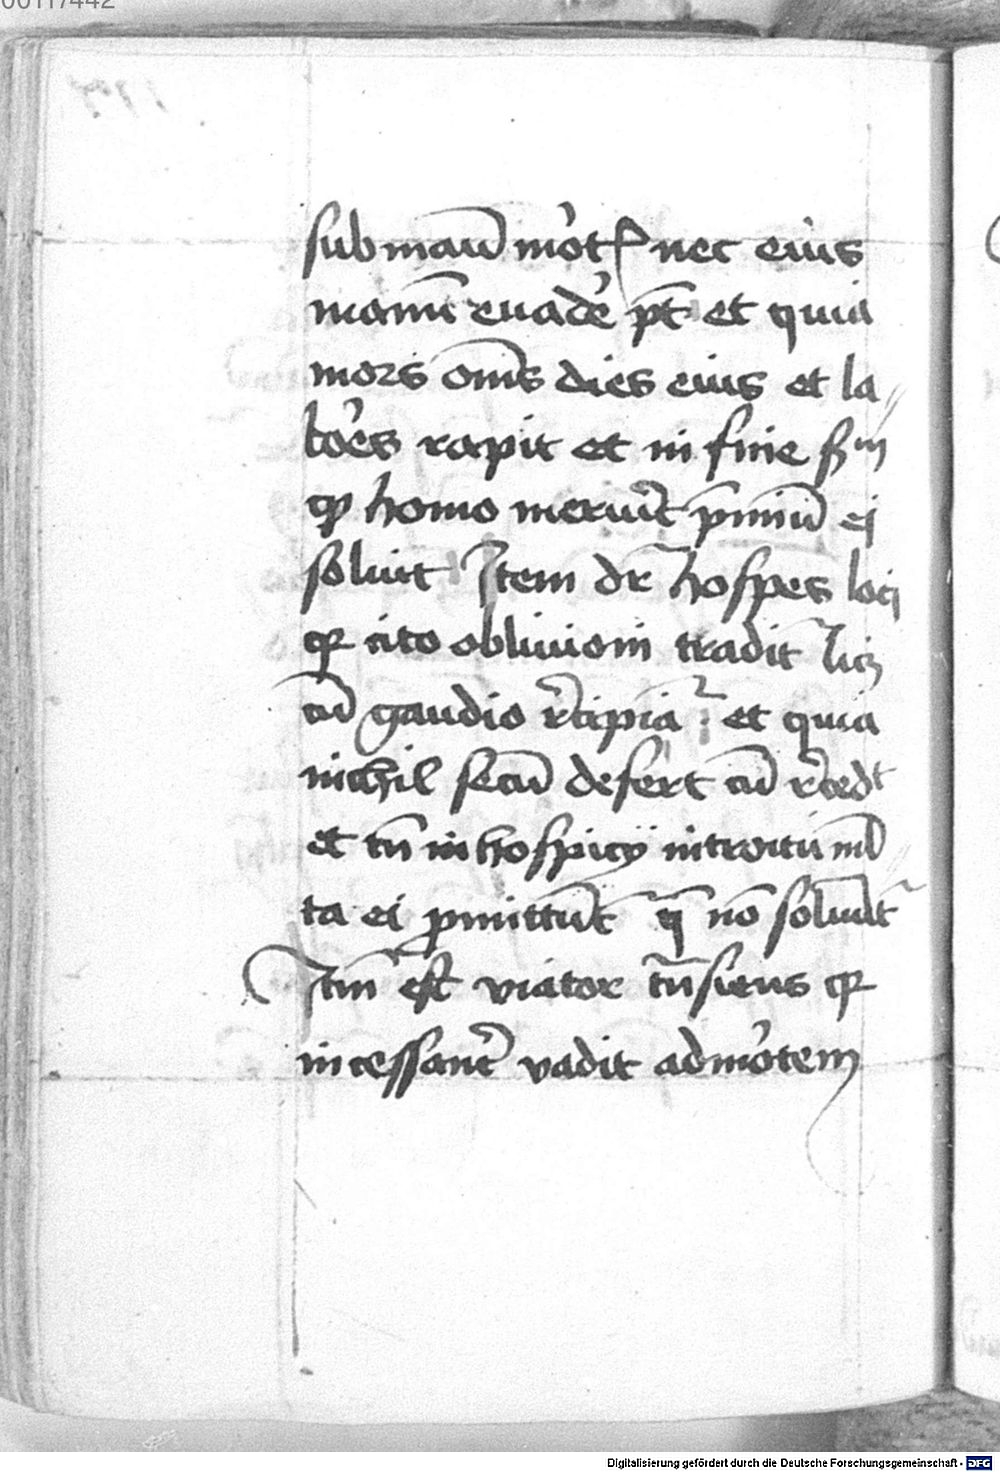 00117442
sub manū mo᷑t̓ nec eius
manū euadē pt̄ et quia
mors om̄s dies eius et la〃
bo᷑es rapit et in fine sm̄
qp homo meruit p̄miū ei
soluit Item dr̄ hospes loci
qr cito obliuioni tradit̄ licꝫ
cū gaudio rc̄ipia᷑ et quia
nichil secū defert cū rc̄edt
et tn̄ in hospicij introitu ml̄〃
ta ei ꝓmittūt q̄ nō soluūt᷑
Itm̄ est viator tn̄siens qr
incessant̄ vadit ad mo᷑tem
Digitalisierung gefördert durch die Deutsche Forschungsgemeinschaft - DFG